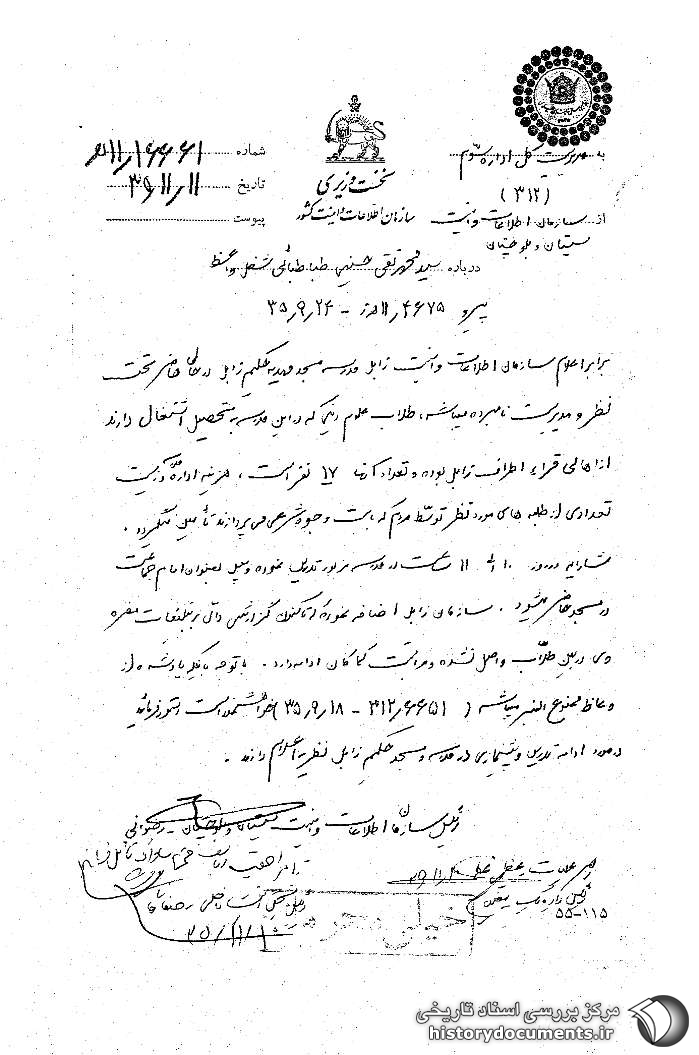 به مدیریت کل اداره سوم
(۳۱۲)
از سازمان اطلاعات و امنیت
سیستان و بلوچستان
نخست وزیری
سازمان اطلاعات و امنیت کشور
شماره
تاریخ ۳۵/۱۱/۱۱
پیوست
درباره سید محمد تقی حسینی طباطبائی شغل واعظ
پیرو ۱۱/۴۶۷۵ هـ ز – ۳۵/۹/۲۴
برابر اعلام سازمان اطلاعات و امنیت زابل مدرسه مسجد مهدیه حکیم زابل در حال حاضر تحت
نظر و مدیریت نامبرده میباشد، طلاب علوم دینی که در این مدرسه به تحصیل اشتغال دارند
از اهالی قراء اطراف زابل بوده و تعداد آنها ۱۷ نفر است، هزینه اداره و زیست
تعدادی از طلبه های مورد نظر توسط مردم که بابت وجوه شرعی می پردازند تأمین میگردد.
مشارالیه در روز ۱۰ الی ۱۱ ساعت در مدرسه مزبور تدریس نموده و سپس بعنوان امام جماعت
در مسجد حاضر میشود. سازمان زابل اضافه نموده که تاکنون گزارشی دال بر تبلیغات مضره
وی در بین طلاب واصل نشده و مراقبت کماکان ادامه دارد. با توجه باینکه یادشده از
وعاظ ممنوع المنبر میباشد (۳۱۲/۶۶۵۱ – ۳۵/۹/۱۸) خواهشمند است دستور فرمائید
در مورد ادامه تدریس و پیشنمازی در مدرسه و مسجد حکیم زابل نظریه اعلام دارند.
رئیس سازمان اطلاعات و امنیت سیستان و بلوچستان – رضوانی
رئیس بخش امنیت داخلی
۵۵-۱۱۵
خیلی محرمانه
مرکز بررسی اسناد تاریخی
historydocuments.ir